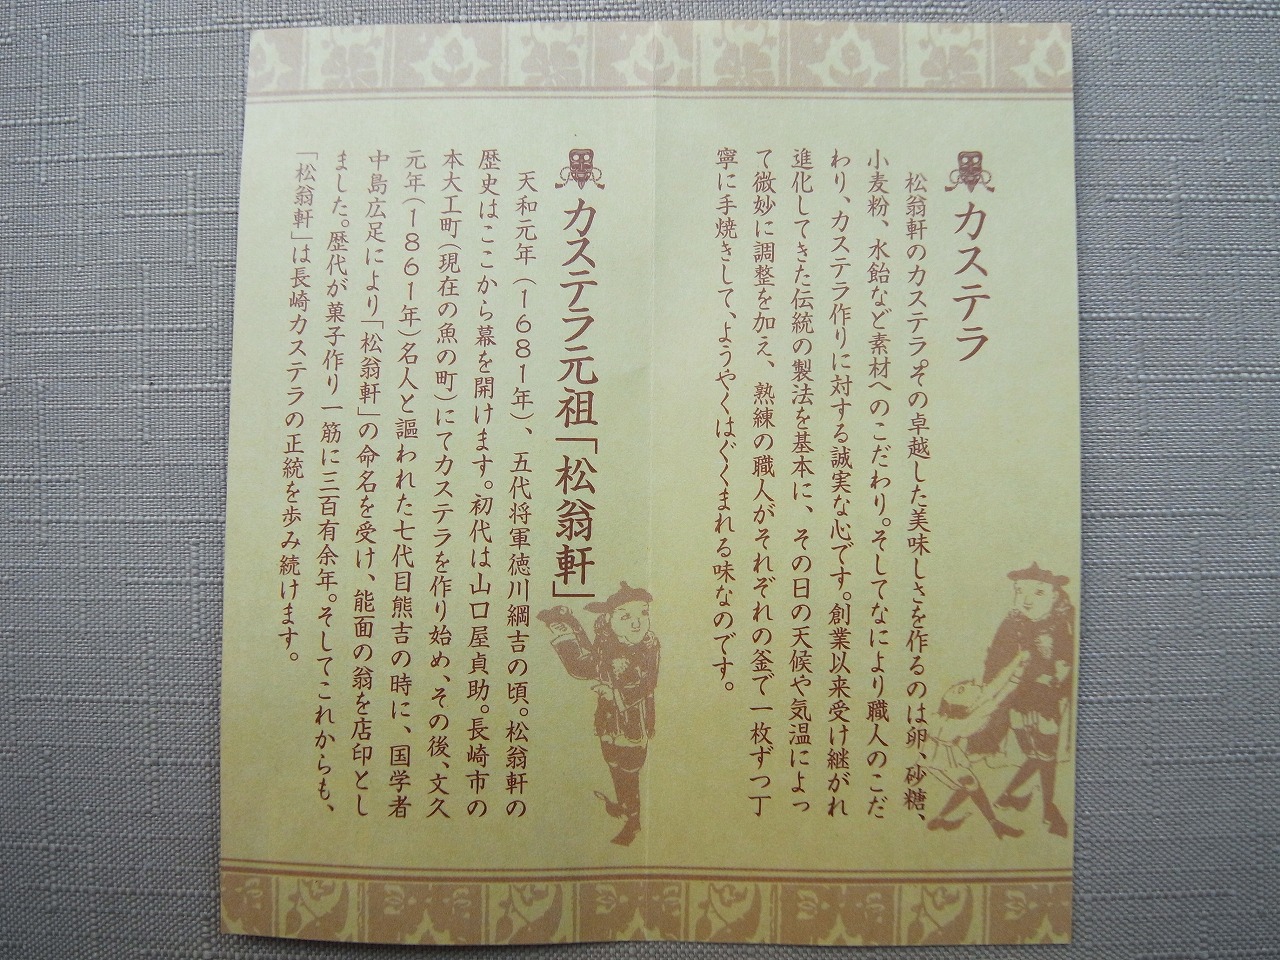 カステラ
松翁軒のカステラ。その卓越した美味しさを作るのは卵、砂糖、
小麦粉、水飴など素材へのこだわり。そしてなにより職人のこだ
わり、カステラ作りに対する誠実な心です。創業以来受け継がれ
進化してきた伝統の製法を基本に、その日の天候や気温によっ
て微妙に調整を加え、熟練の職人がそれぞれの釜で一枚ずつ丁
寧に手焼きして、ようやくはぐくまれる味なのです。
カステラ元祖「松翁軒」
天和元年（１６８１年）、五代将軍徳川綱吉の頃。松翁軒の
歴史はここから幕を開けます。初代は山口屋貞助。長崎市の
本大工町（現在の魚の町）にてカステラを作り始め、その後、文久
元年（１８６１年）名人と謳われた七代目熊吉の時に、国学者
中島広足により「松翁軒」の命名を受け、能面の翁を店印とし
ました。歴代が菓子作り一筋に三百有余年。そしてこれからも、
「松翁軒」は長崎カステラの正統を歩み続けます。